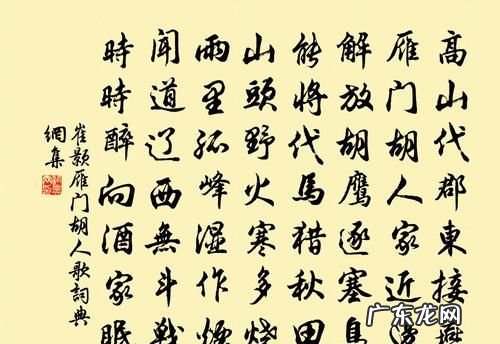 高山代郡東接燕
雁门胡人家近邊
解放胡鹰逐塞鳥
能将代馬猎秋田
山頭野火寒多燒
雨里孤峰湿作煙
闻道辽西無斗戰
時時醉向酒家眠
崔颢雁门胡人歌詞典
網集
广东龙网